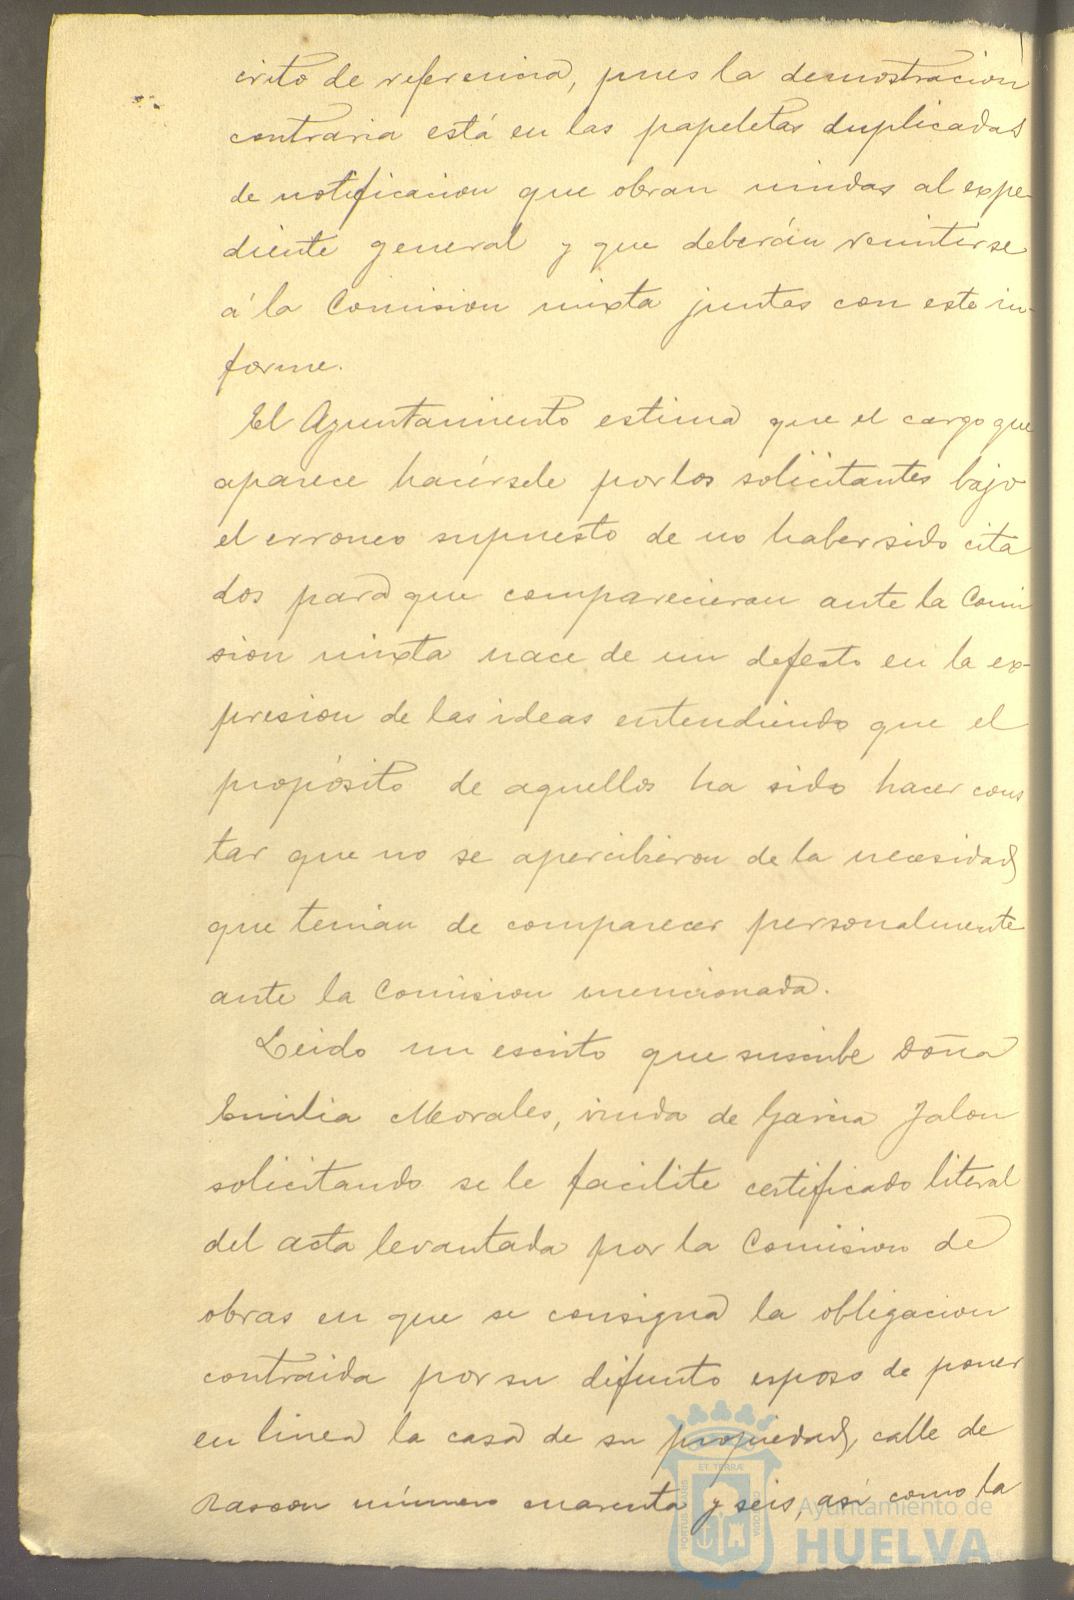 crito de referencia, pues la demostracion
contraria está en las papeletas duplicadas
de notificacion que obran unidas al expe-
diente general y que deberán remitirse
á la Comision mixta juntas con este in-
forme.
El Ayuntamiento estima que el cargo que
aparece hacérsele por los solicitantes bajo
el erroneo supuesto de no haber sido cita
dos para que comparecieran ante la Comi
sion mixta nace de un defecto en la ex-
presion de las ideas entendiendo que el
propósito de aquellos ha sido hacer cons
tar que no se apercibieron de la necesidad
que tenian de comparecer personalmente
ante la Comision mencionada.
Leido un escrito que suscribe Doña
Emilia Morales, viuda de Garcia Jalon
solicitando se le facilite certificado literal
del acta levantada por la Comision de
obras en que se consigna la obligacion
contraida por su difunto esposo de poner
en linea la casa de su propiedad, calle de
Rascon número cuarenta y seis, así como la
ET TERRÆ
PORTUS MARIS
CUSTODIA
Ayuntamiento de
HUELVA